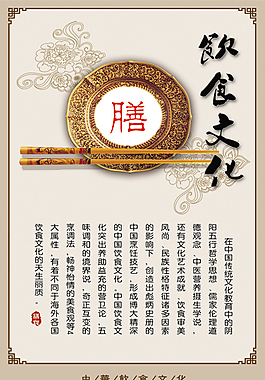 飲食文化
膳
在中国传统文化教育中的阴
阳五行哲学思想、儒家伦理道
德观念、中医营养摄生学说，
还有文化艺术成就、饮食审美
风尚、民族性格特征诸多因素
的影响下，创造出彪炳史册的
中国烹饪技艺，形成博大精深
的中国饮食文化。中国饮食文
化突出养助益充的营卫论，五
味调和的境界说，奇正互变的
烹调法，畅神怡情的美食观等4
大属性，有着不同于海外各国
饮食文化的天生丽质。
中/華/飲/食/文/化